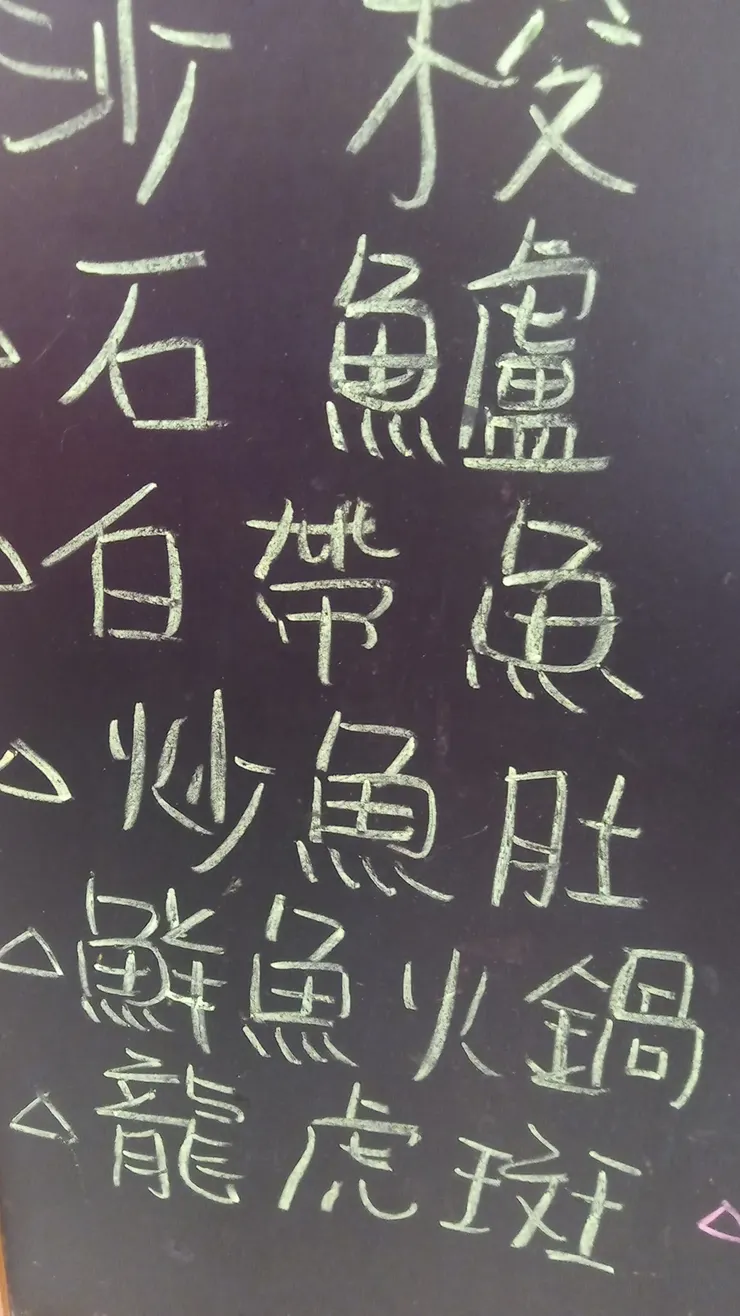 沙梭
石鱸
白帶魚
炒魚肚
鮮魚火鍋
龍虎斑